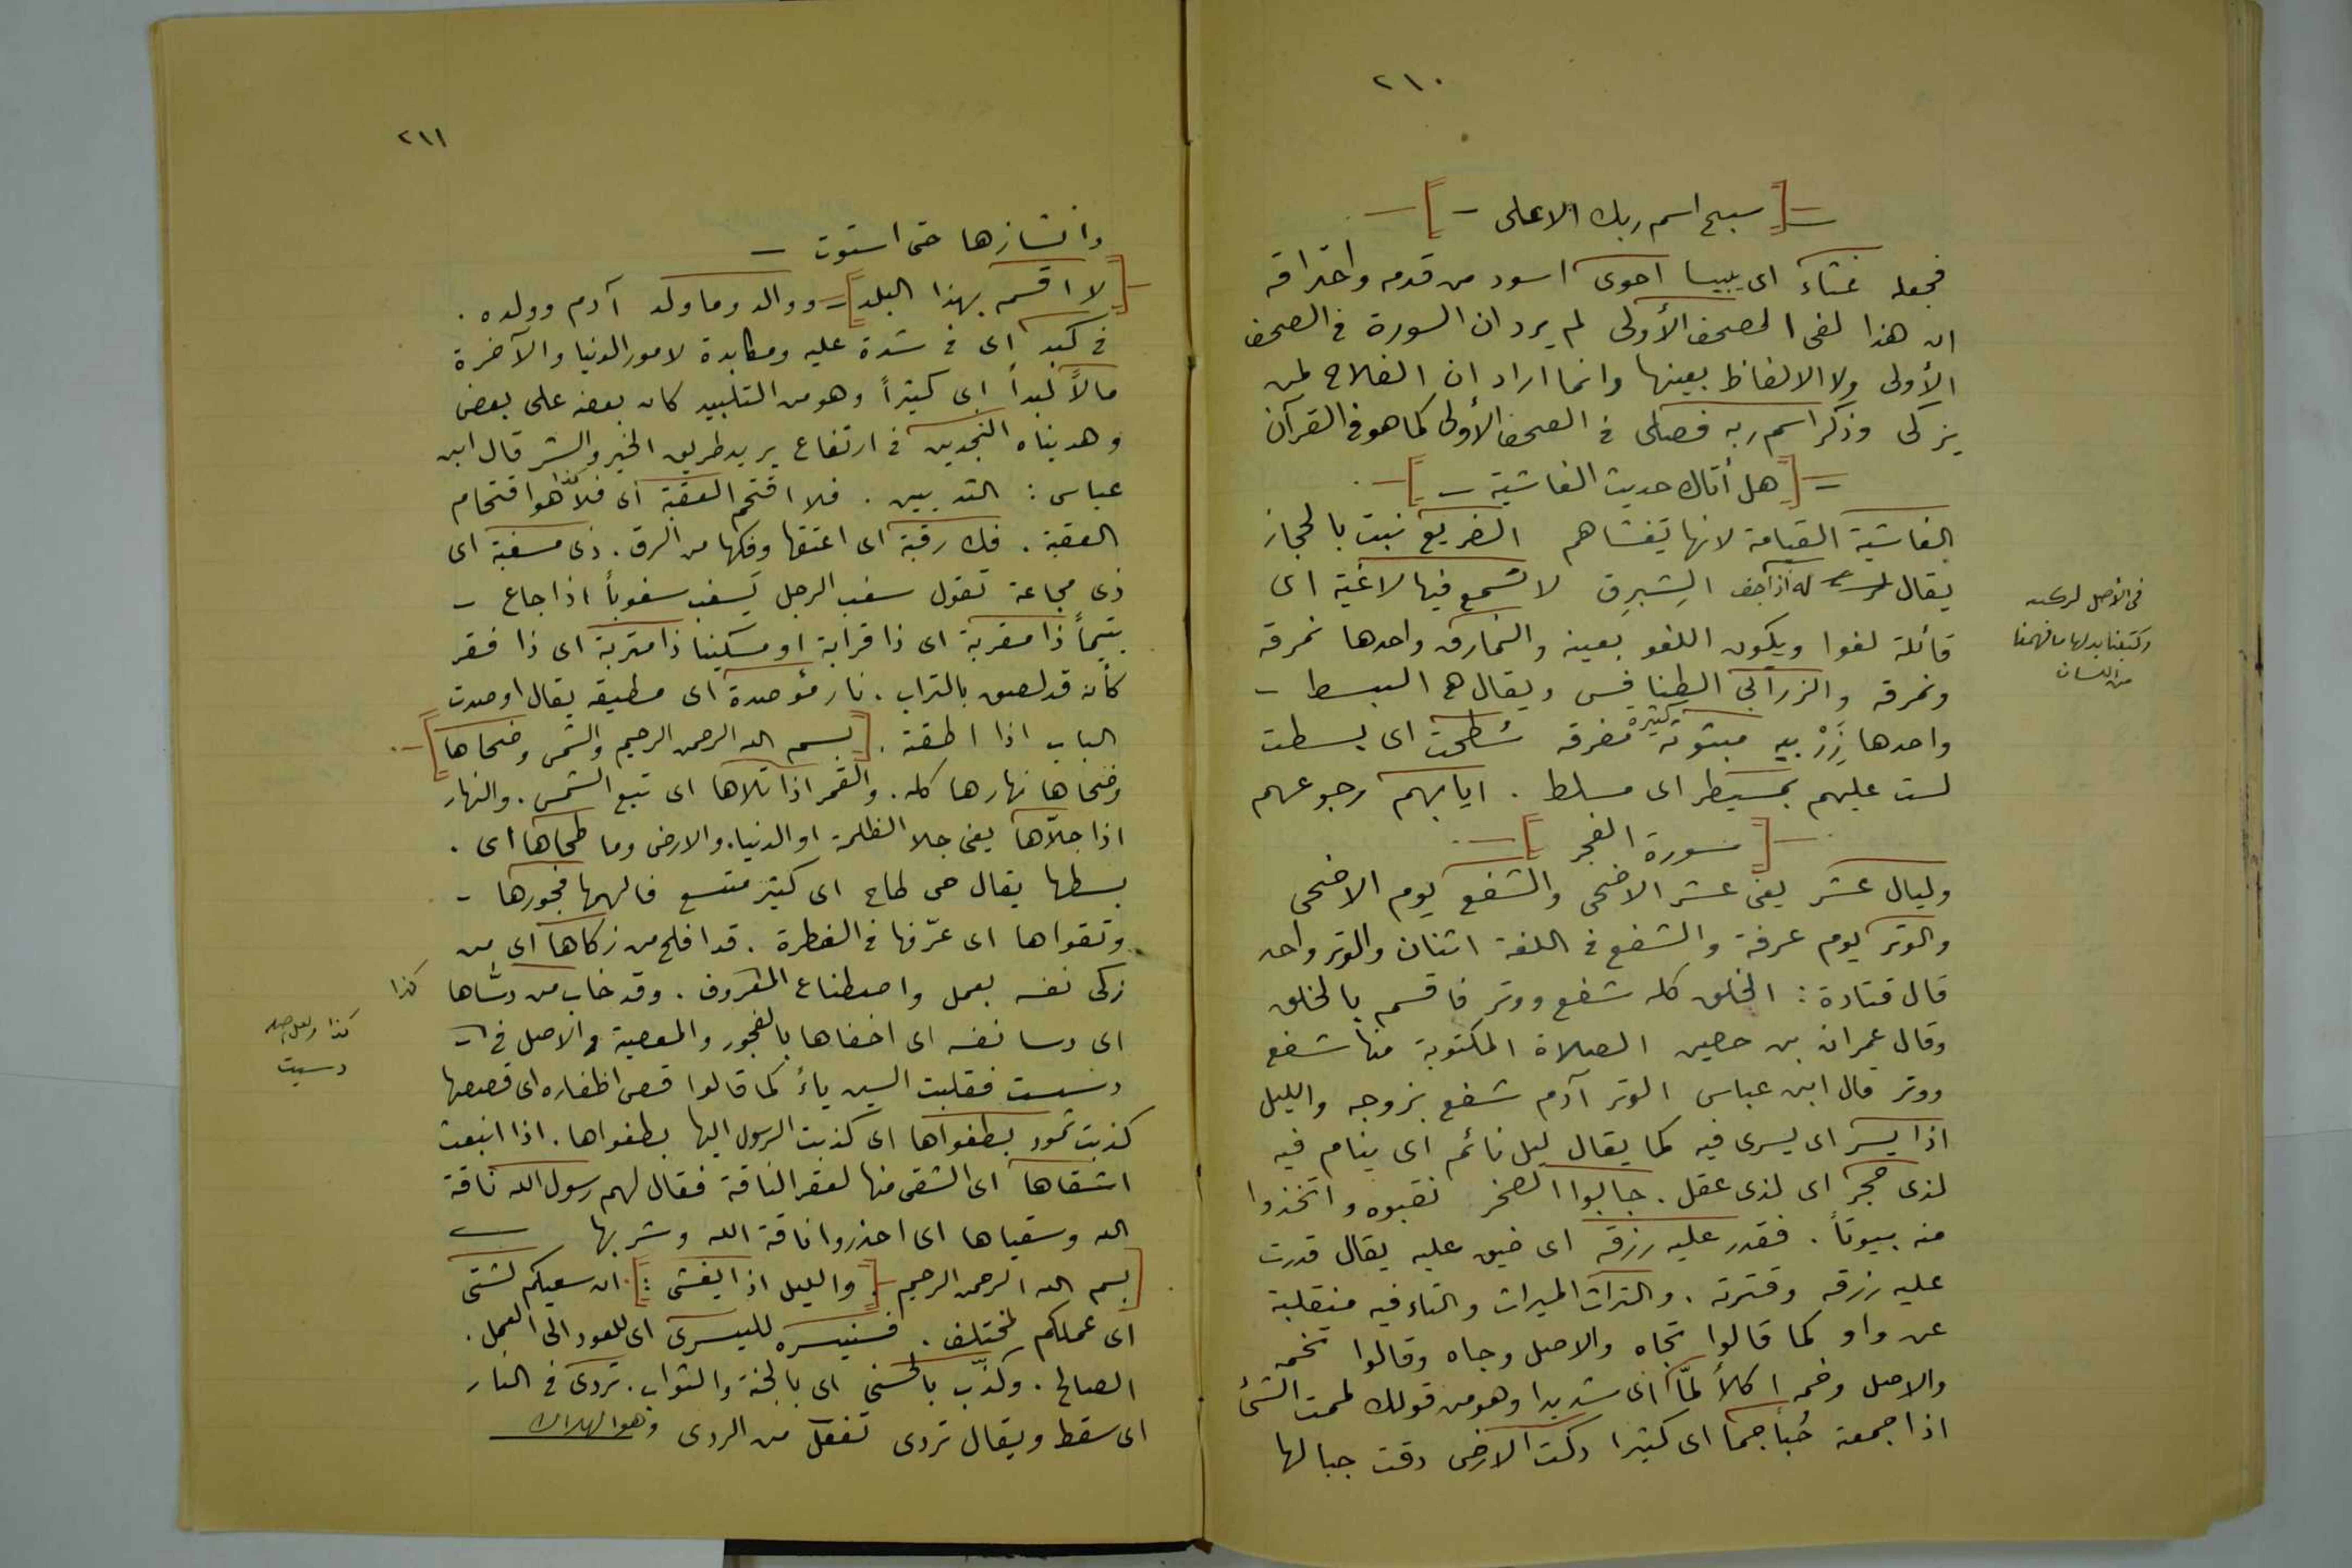 ٢١٠
[سبح اسم ربك الاعلى]
فجعله غثاء اى يبيسا احوى اسود من قدمه واحتراقه
ان هذا لفى الصحف الأولى لم يرد ان السورة فى الصحف
الأولى ولا الالفاظ بعينها وانما اراد ان الفلاح لمن
يزكى وذكر اسم ربه فصلى فى الصحف الأولى كما هو فى القرآن
[هل أتاك حديث الغاشية]
الغاشية القيامة لانها تغشاهم الضريع نبت بالحجاز
يقال له اذا جف الشِبرِق لا تسمع فيها لاغية اى
قائلة لغوا ويكون اللغو بعينه والنمارق واحدها نمرقة
ونمرقه والزرابى الطنافس ويقال هى البسط -
واحدها زَرْبيه مبثوثة كثيرة مفرقه سُطحت اى بسطت
لست عليهم بمسيطر اى مسلط . ايابهم رجوعهم
[سورة الفجر]
وليال عشر يعنى عشر الاضحى والشفع يوم الاضحى
والوتر يوم عرفة والشفع فى اللغة اثنان والوتر واحد
قال قتادة : الخلق كله شفع ووتر فاقسم بالخلق
وقال عمران بن حصين الصلاة المكتوبة منها شفع
ووتر قال ابن عباس الوتر آدم شفع بزوجه والليل
اذا يسر اى يسرى فيه كما يقال ليل نائم اى ينام فيه
لذى حجر اى لذى عقل . جابوا الصخر نقبوه واتخذوا
منه بيوتاً . فقدر عليه رزقه اى ضيق عليه يقال قدرت
عليه رزقه وقترته . والتراث الميراث والتاء فيه منقلبة
عن واو كما قالوا تجاه والاصل وجاه وقالوا تخمه
والاصل وخمه اكلاً لمّاً اى شديدا وهو من قولك لممت الشئ
اذا جمعته حُباً جماً اى كثيرا دكت الارض دقت جبالها
فى الأصل
وكتبنا بدلها ما فهمنا
من اللسان
٢١١
وانشازها حتى استوت -
[لا اقسم بهذا البلد] - ووالد وما ولد آدم وولده .
فى كبد اى فى شدة عليه ومكابدة لامور الدنيا والآخرة
مالاً لبداً اى كثيراً وهو من التلبيد كان بعضه على بعض
وهديناه النجدين فى ارتفاع يريد طريق الخير والشر قال ابن
عباس : الثديين . فلا اقتحم العقبة اى فلا كذا هو اقتحام
العقبة . فك رقبة اى اعتقها وفكها من الرق . ذى مسغبة اى
ذى مجاعة تقول سغب الرجل يَسغب سغوباً اذا جاع -
يتيماً ذا مقربة اى ذا قرابة او مسكينا ذا متربة اى ذا فقر
كأنه قد لصق بالتراب . نار مؤصدة اى مطبقه يقال اوصدت
الباب اذا اطبقته . [بسم الله الرحمن الرحيم والشمس وضحاها]
وضحاها نهارها كله . والقمر اذا تلاها اى تبع الشمس . والنهار
اذا جلاّها يعنى جلا الظلمة او الدنيا . والارض وما طحاها اى .
بسطها يقال حى طاح اى كثير متسع فالهمها فجورها -
وتقواها اى عرّفها فى الفطرة . قد افلح من زكاها اى من
زكى نفسه بعمل واصطناع المعروف . وقد خاب من دسّاها
كذا
اى دسا نفسه اى اخفاها بالفجور والمعصية والاصل فى -
دسست فقلبت السين ياءً كما قالوا قصى اظفاره اى قصصها
كذبت ثمود بطغواها اى كذبت الرسول اليها بطغواها . اذا انبعث
اشقاها اى الشقى منها لعقر الناقة فقال لهم رسول الله ناقة
الله وسقياها اى احذروا ناقة الله وشربها
[بسم الله الرحمن الرحيم - [والليل اذا يغشى :] ان سعيكم لشتى
اى عملكم لمختلف . فسنيسره لليسرى اى للعود الى العمل .
الصالح . وكذّب بالحسنى اى بالجنة والثواب . تردى فى النار
اى سقط ويقال تردى تفعّل من الردى وهو الهلاك
كذا ولعل اصله
دسيت